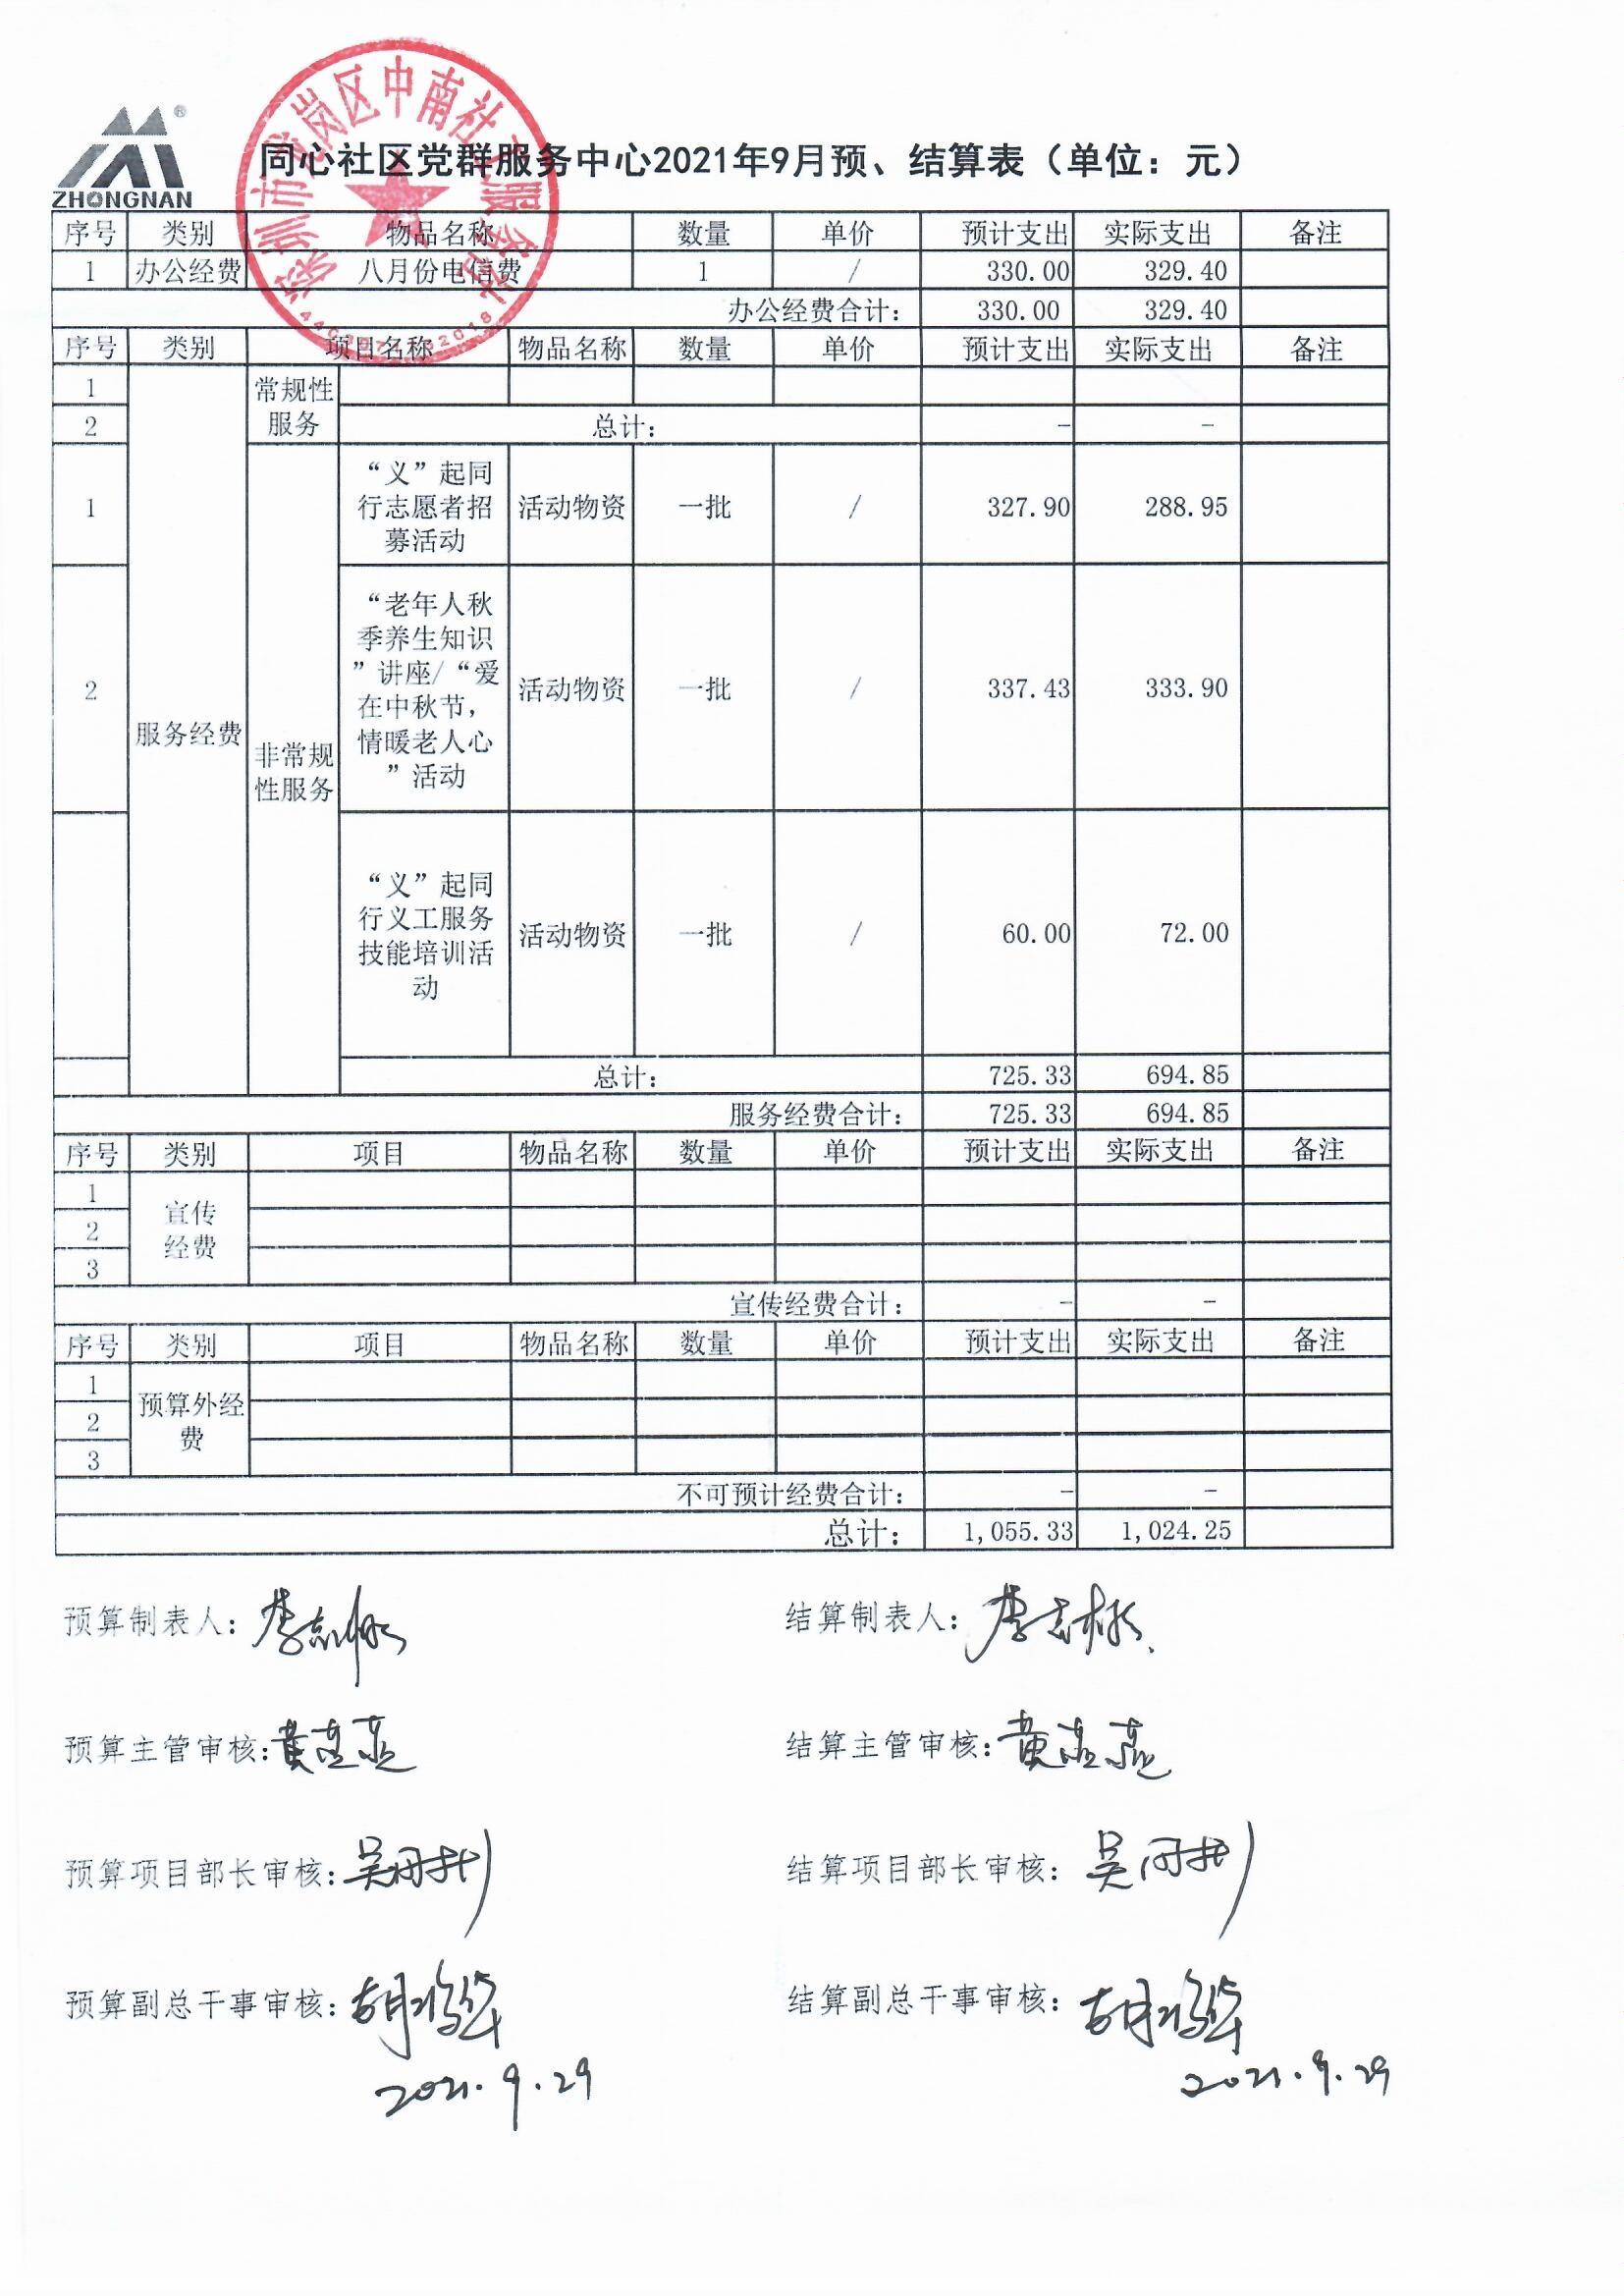 ZHONGNAN
®
深圳市龙岗区中南社工服务社
同心社区党群服务中心2021年9月预、结算表（单位：元）
序号 类别 物品名称 数量 单价 预计支出 实际支出 备注
1 办公经费 八月份电信费 1 / 330.00 329.40
办公经费合计： 330.00 329.40
序号 类别 项目名称 物品名称 数量 单价 预计支出 实际支出 备注
1
常规性
服务
2 总计： - -
服务经费
非常规
性服务
1
“义”起同
行志愿者招
募活动
活动物资 一批 / 327.90 288.95
2
“老年人秋
季养生知识
”讲座/“爱
在中秋节，
情暖老人心
”活动
活动物资 一批 / 337.43 333.90
“义”起同
行义工服务
技能培训活
动
活动物资 一批 / 60.00 72.00
总计： 725.33 694.85
服务经费合计： 725.33 694.85
序号 类别 项目 物品名称 数量 单价 预计支出 实际支出 备注
1
宣传
2
经费
3
宣传经费合计： - -
序号 类别 项目 物品名称 数量 单价 预计支出 实际支出 备注
1
预算外经
2
费
3
不可预计经费合计： - -
总计： 1,055.33 1,024.25
预算制表人： 结算制表人：
预算主管审核： 结算主管审核：
预算项目部长审核： 结算项目部长审核：
预算副总干事审核： 结算副总干事审核：
2021.9.29 2021.9.29